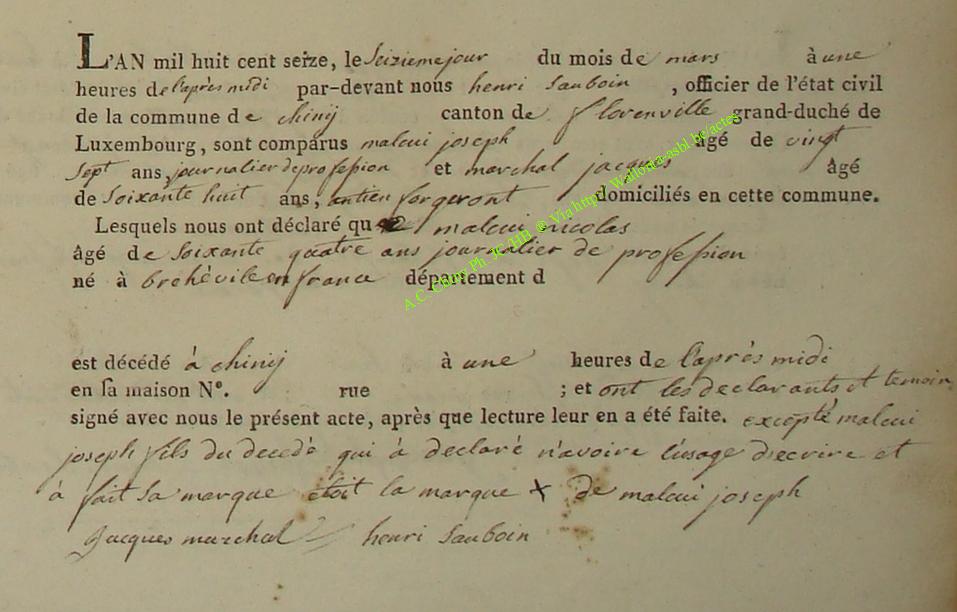 L'AN mil huit cent seize, le Seizieme jour du mois de mars à une
heures de l'après midi par-devant nous henri Sauboin , officier de l'état civil
de la commune de chiny canton de florenville grand-duché de
Luxembourg, sont comparus malcui joseph âgé de vingt
Sept ans, journalier de profession et marchal jacques âgé
de Soixante huit ans, antien forgeront domiciliés en cette commune.
Lesquels nous ont déclaré que malcui nicolas
âgé de Soixante quatre ans journalier de profession
né à brehévile en france département d
est décédé à chiny à une heures de l'après midi
en sa maison N°. rue ; et ont les declarants et temoin
signé avec nous le présent acte, après que lecture leur en a été faite. excepté malcui
joseph fils du decedé qui à declaré n'avoire l'usage d'ecrire et
à fait sa marque étoit la marque X de malcui joseph
Jacques marchal henri Sauboin
A.C. Chiny Ph. JC.HB @ Via http://Wallonia-asbl.be/actes